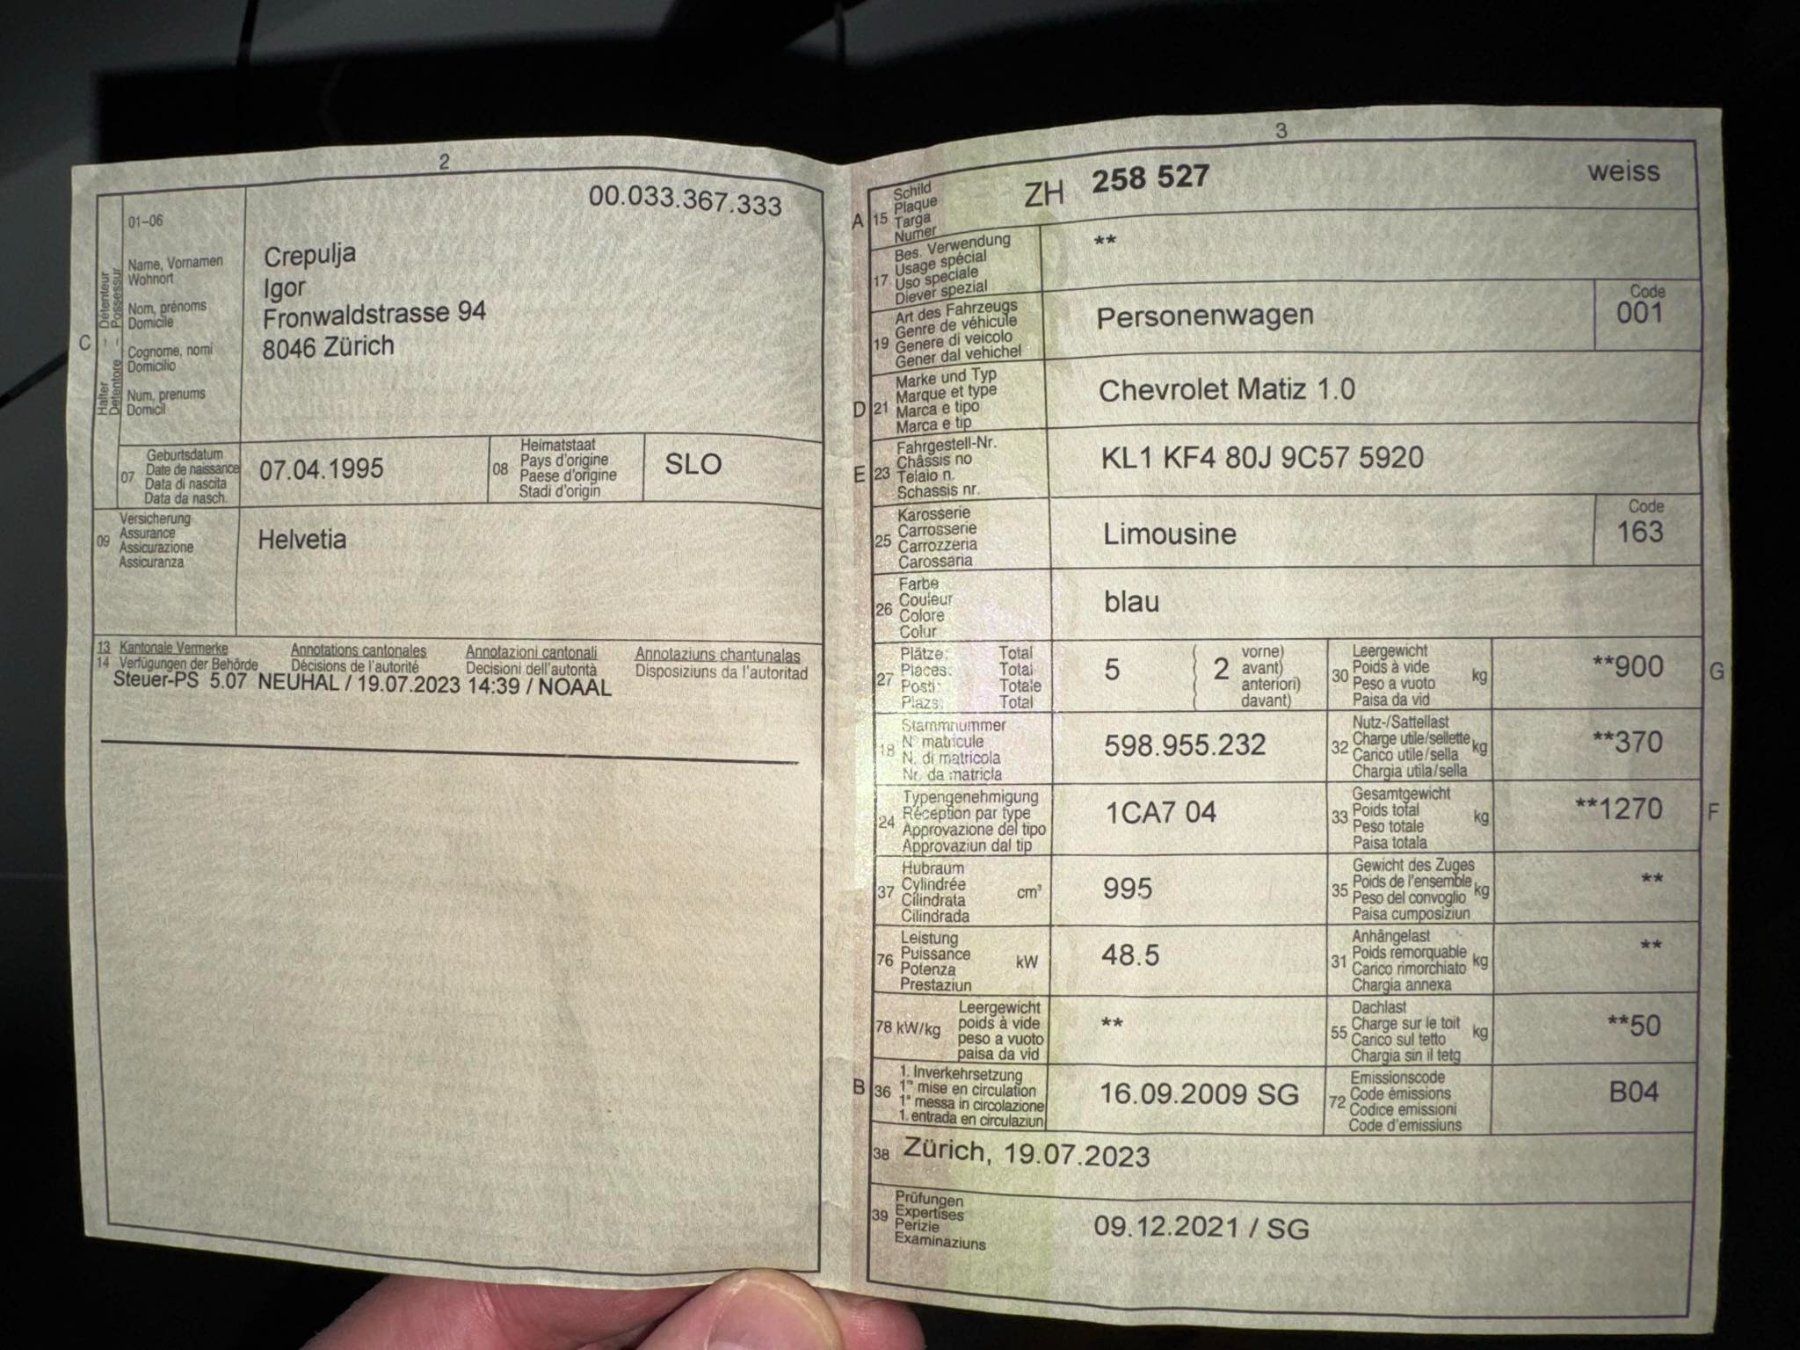 2
00.033.367.333
01-06
C
Halter – Détenteur
Detentore – Possessur
Name, Vornamen
Wohnort
Nom, prénoms
Domicile
Cognome, nomi
Domicilio
Num, prenums
Domicil
Crepulja
Igor
Fronwaldstrasse 94
8046 Zürich
07
Geburtsdatum
Date de naissance
Data di nascita
Data da nasch.
07.04.1995
08
Heimatstaat
Pays d'origine
Paese d'origine
Stadi d'origin
SLO
09
Versicherung
Assurance
Assicurazione
Assicuranza
Helvetia
13 Kantonale Vermerke Annotations cantonales Annotazioni cantonali Annotaziuns chantunalas
14 Verfügungen der Behörde Décisions de l'autorité Decisioni dell'autorità Disposiziuns da l'autoritad
Steuer-PS 5.07 NEUHAL / 19.07.2023 14:39 / NOAAL
3
A 15
Schild
Plaque
Targa
Numer
ZH 258 527 weiss
17
Bes. Verwendung
Usage spécial
Uso speciale
Diever spezial
**
19
Art des Fahrzeugs
Genre de véhicule
Genere di veicolo
Gener dal vehichel
Personenwagen
Code
001
D 21
Marke und Typ
Marque et type
Marca e tipo
Marca e tip
Chevrolet Matiz 1.0
E 23
Fahrgestell-Nr.
Châssis no
Telaio n.
Schassis nr.
KL1 KF4 80J 9C57 5920
25
Karosserie
Carrosserie
Carrozzeria
Carossaria
Limousine
Code
163
26
Farbe
Couleur
Colore
Colur
blau
27
Plätze: Total
Places: Total
Posti: Totale
Plazs: Total
5 ( 2
vorne)
avant)
anteriori)
davant)
30
Leergewicht
Poids à vide
Peso a vuoto
Paisa da vid
kg
**900
G
18
Stammnummer
N° matricule
N. di matricola
Nr. da matricla
598.955.232
32
Nutz-/Sattellast
Charge utile/sellette
Carico utile/sella
Chargia utila/sella
kg
**370
24
Typengenehmigung
Réception par type
Approvazione del tipo
Approvaziun dal tip
1CA7 04
33
Gesamtgewicht
Poids total
Peso totale
Paisa totala
kg
**1270
F
37
Hubraum
Cylindrée
Cilindrata
Cilindrada
cm³
995
35
Gewicht des Zuges
Poids de l'ensemble
Peso del convoglio
Paisa cumposiziun
kg
**
76
Leistung
Puissance
Potenza
Prestaziun
kW
48.5
31
Anhängelast
Poids remorquable
Carico rimorchiato
Chargia annexa
kg
**
78 kW/kg
Leergewicht
poids à vide
peso a vuoto
paisa da vid
**
55
Dachlast
Charge sur le toit
Carico sul tetto
Chargia sin il tetg
kg
**50
B 36
1. Inverkehrsetzung
1re mise en circulation
1a messa in circolazione
1. entrada en circulaziun
16.09.2009 SG
72
Emissionscode
Code émissions
Codice emissioni
Code d'emissiuns
B04
38 Zürich, 19.07.2023
39
Prüfungen
Expertises
Perizie
Examinaziuns
09.12.2021 / SG